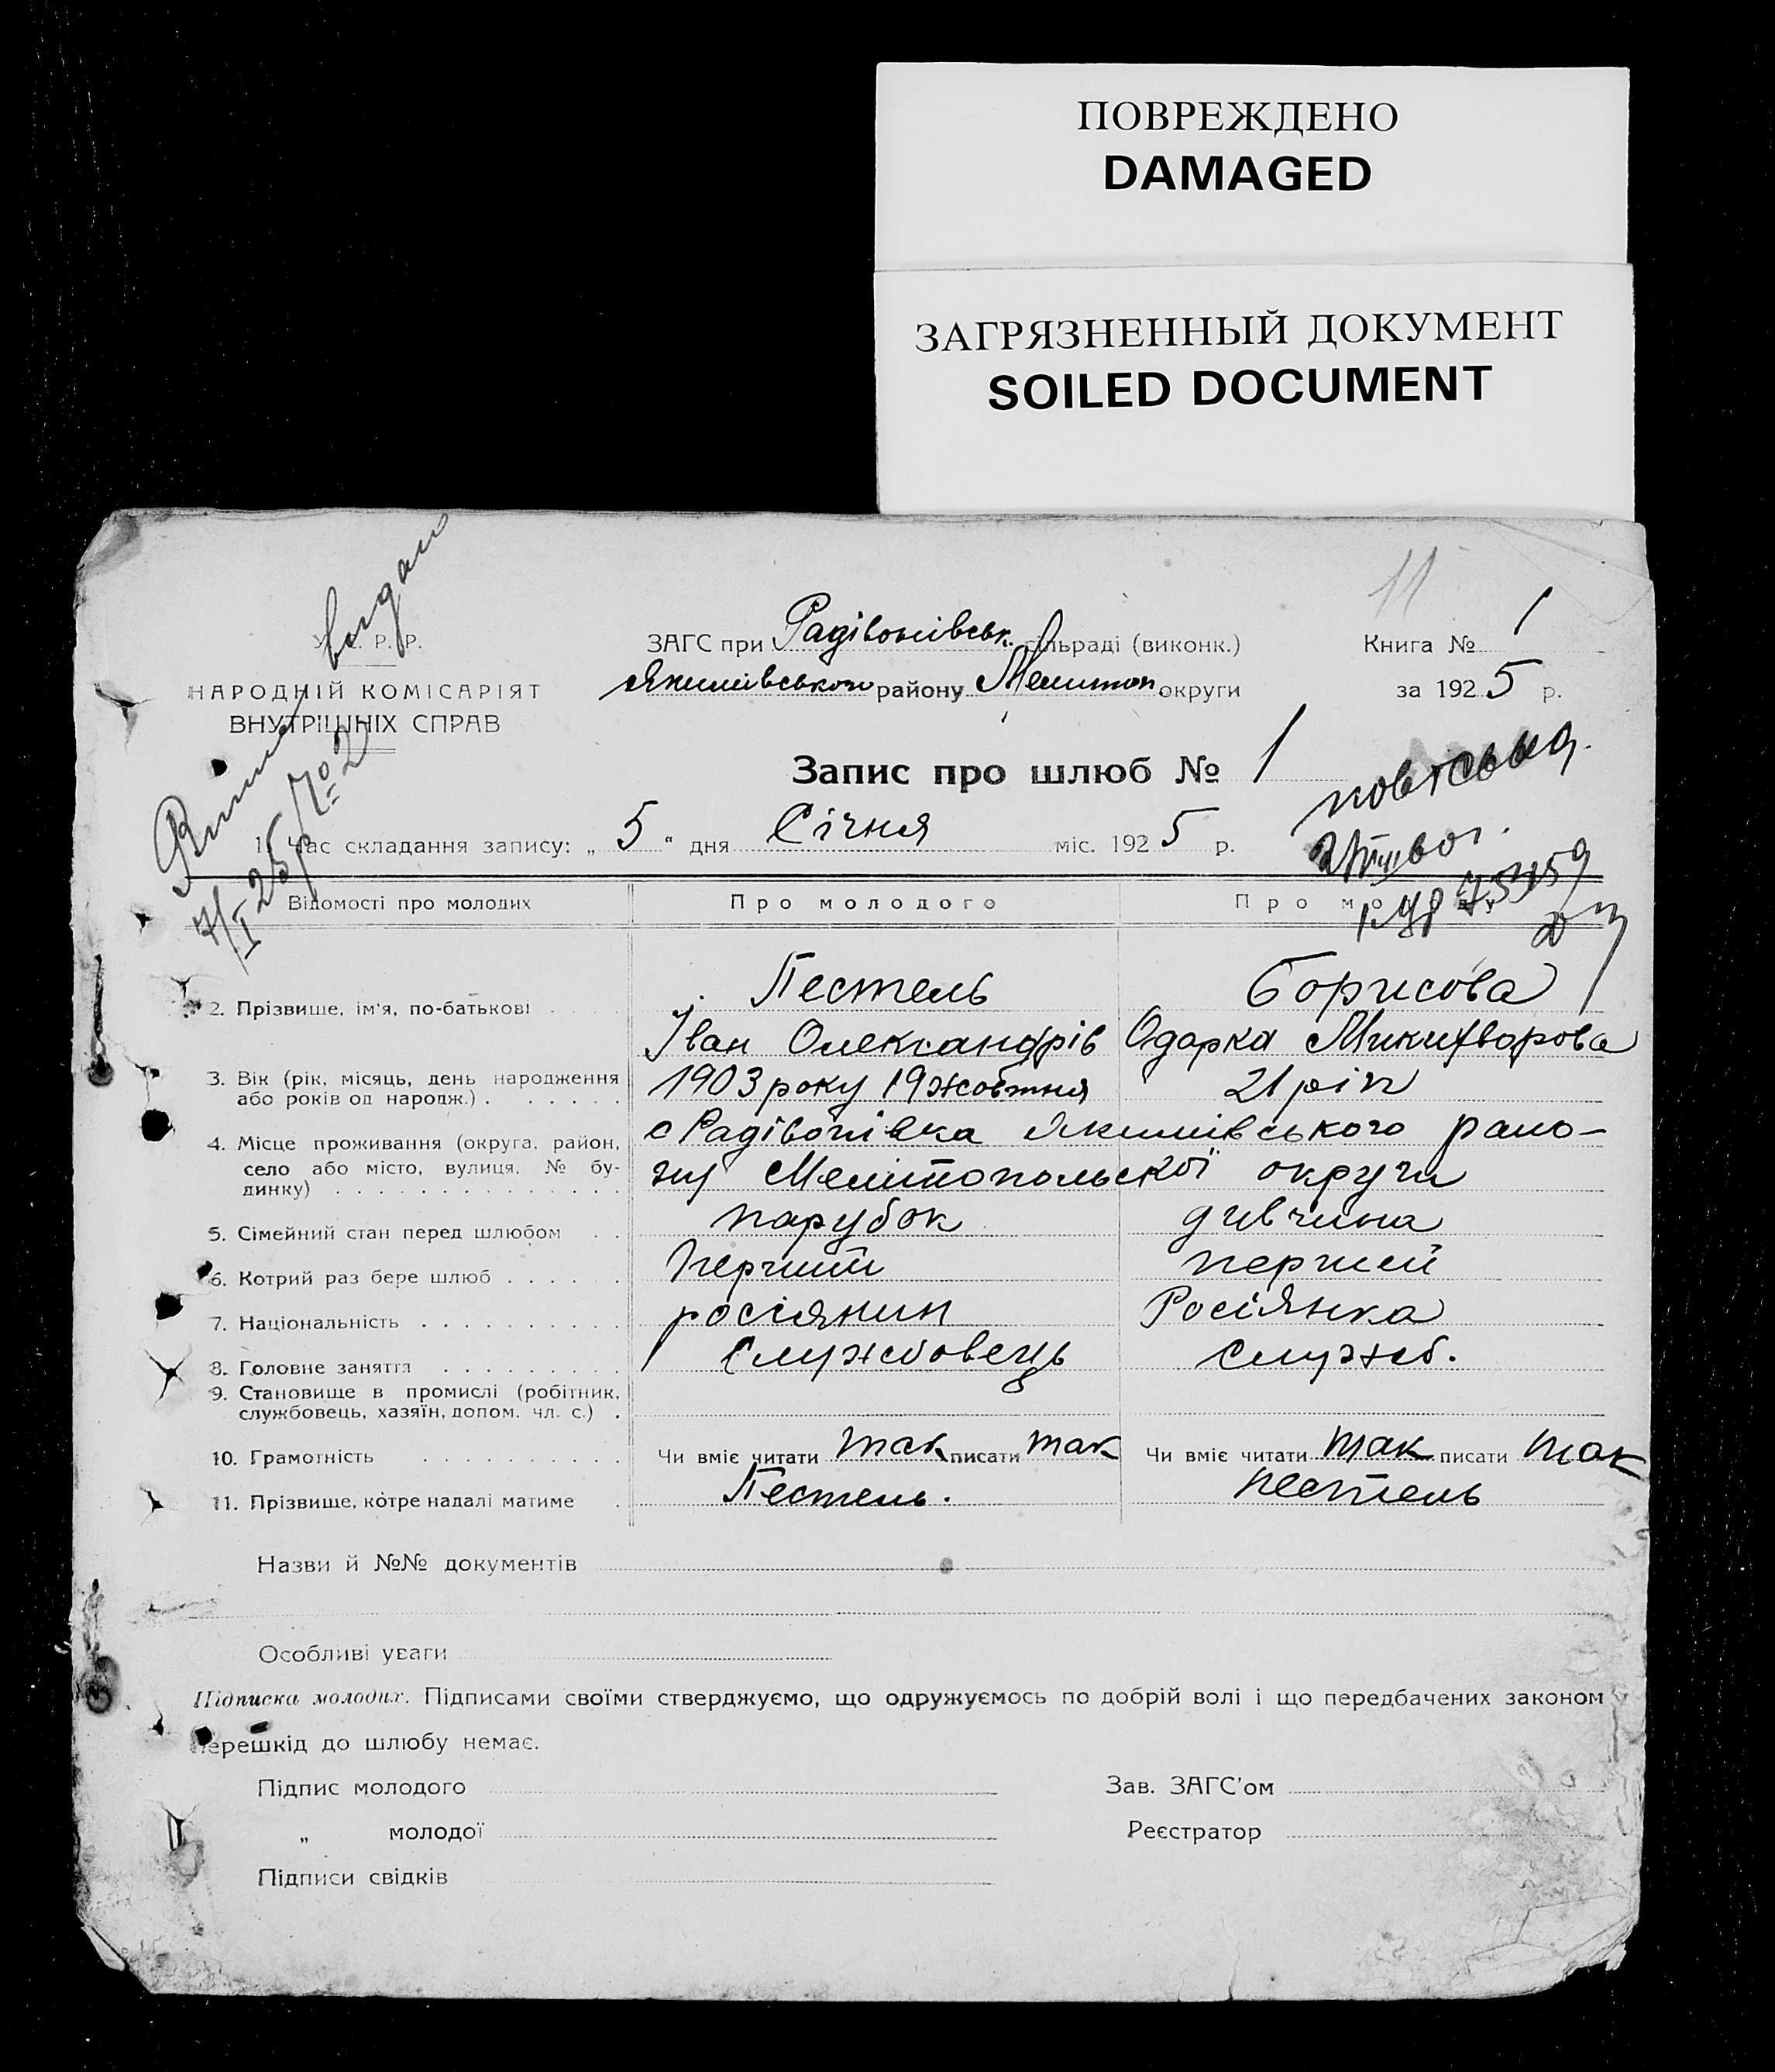 ПОВРЕЖДЕНО
DAMAGED
ЗАГРЯЗНЕННЫЙ ДОКУМЕНТ
SOILED DOCUMENT
11
видано
У. Р. Р.
НАРОДНІЙ КОМІСАРІЯТ
ВНУТРІШНІХ СПРАВ
ЗАГС при Радівонівськ. сільраді (виконк.)
Якимівського району Мелитоп. округи
Книга № 1
за 1925 р.
Запис про шлюб № 1
7/I 25 № 2
1. Час складання запису: „ 5 " дня Січня міс. 1925 р.
Відомості про молодих
Про молодого
Про молоду
2. Прізвище, ім'я, по-батькові
Пестель
Борисова
Іван Олександрів
Одарка Микифворова
3. Вік (рік, місяць, день народження
або років од народж.)
1903 року 19 жовтня
21 рік
4. Місце проживання (округа, район,
село або місто, вулиця, № бу-
динку)
с Радівонівка Якимівського рано-
ну Мелітопольської округи
5. Сімейний стан перед шлюбом
парубок
дивчина
6. Котрий раз бере шлюб
Перший
перший
7. Національність
росіянин
Росіянка
8. Головне заняття
Службовець
служб.
9. Становище в промислі (робітник,
службовець, хазяїн, допом. чл. с.)
10. Грамотність
Чи вміє читати так писати так
Чи вміє читати так писати так
11. Прізвище, котре надалі матиме
Пестель.
Пестель
Назви й №№ документів
Особливі уваги
Підписка молодих. Підписами своїми стверджуємо, що одружуємось по добрій волі і що передбачених законом
перешкід до шлюбу немає.
Підпис молодого
Зав. ЗАГС'ом
„ молодої
Реєстратор
Підписи свідків